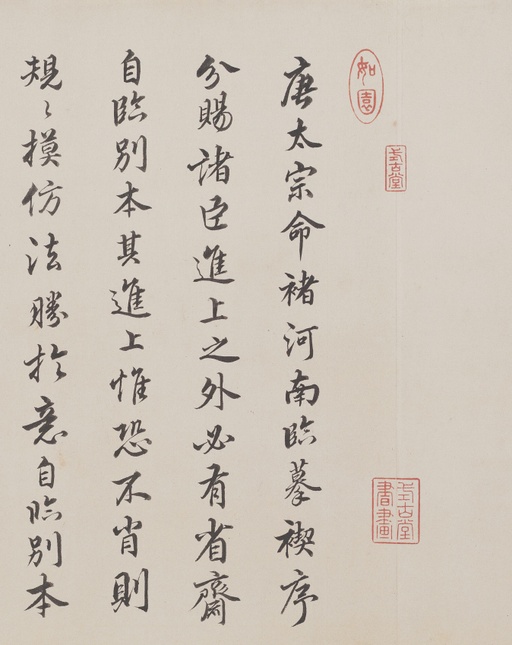 唐太宗命褚河南臨摹禊序
分賜諸臣進上之外必有省齋
自臨別本其進上惟恐不肖則
規〻摸仿法勝於意自臨別本
如園